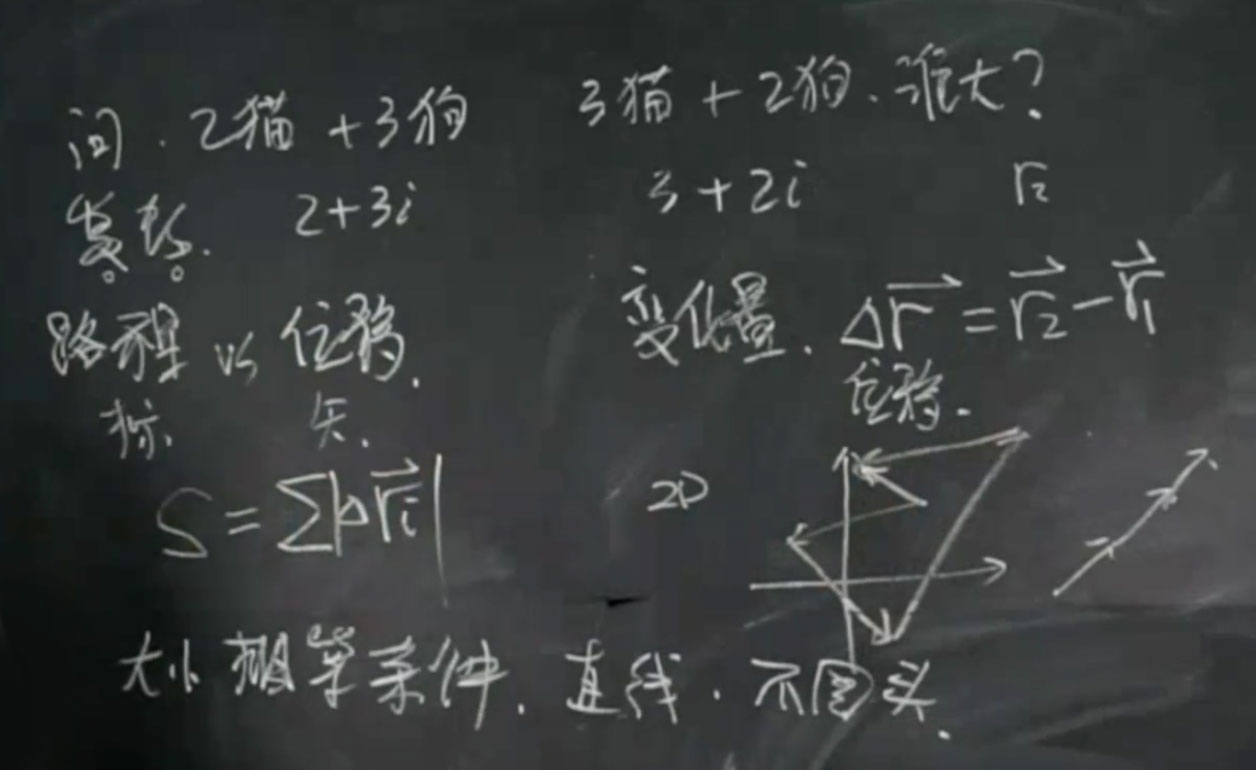 问. 2猫 + 3狗 3猫 + 2狗. 谁大?
2+3i 3+2i r₂
路程 vs 位移. 变化量. Δr⃗ = r⃗₂ - r⃗₁
标. 矢. 位移.
S = Σ|Δr⃗ᵢ| 2D
大小相等条件. 直线. 不回头.